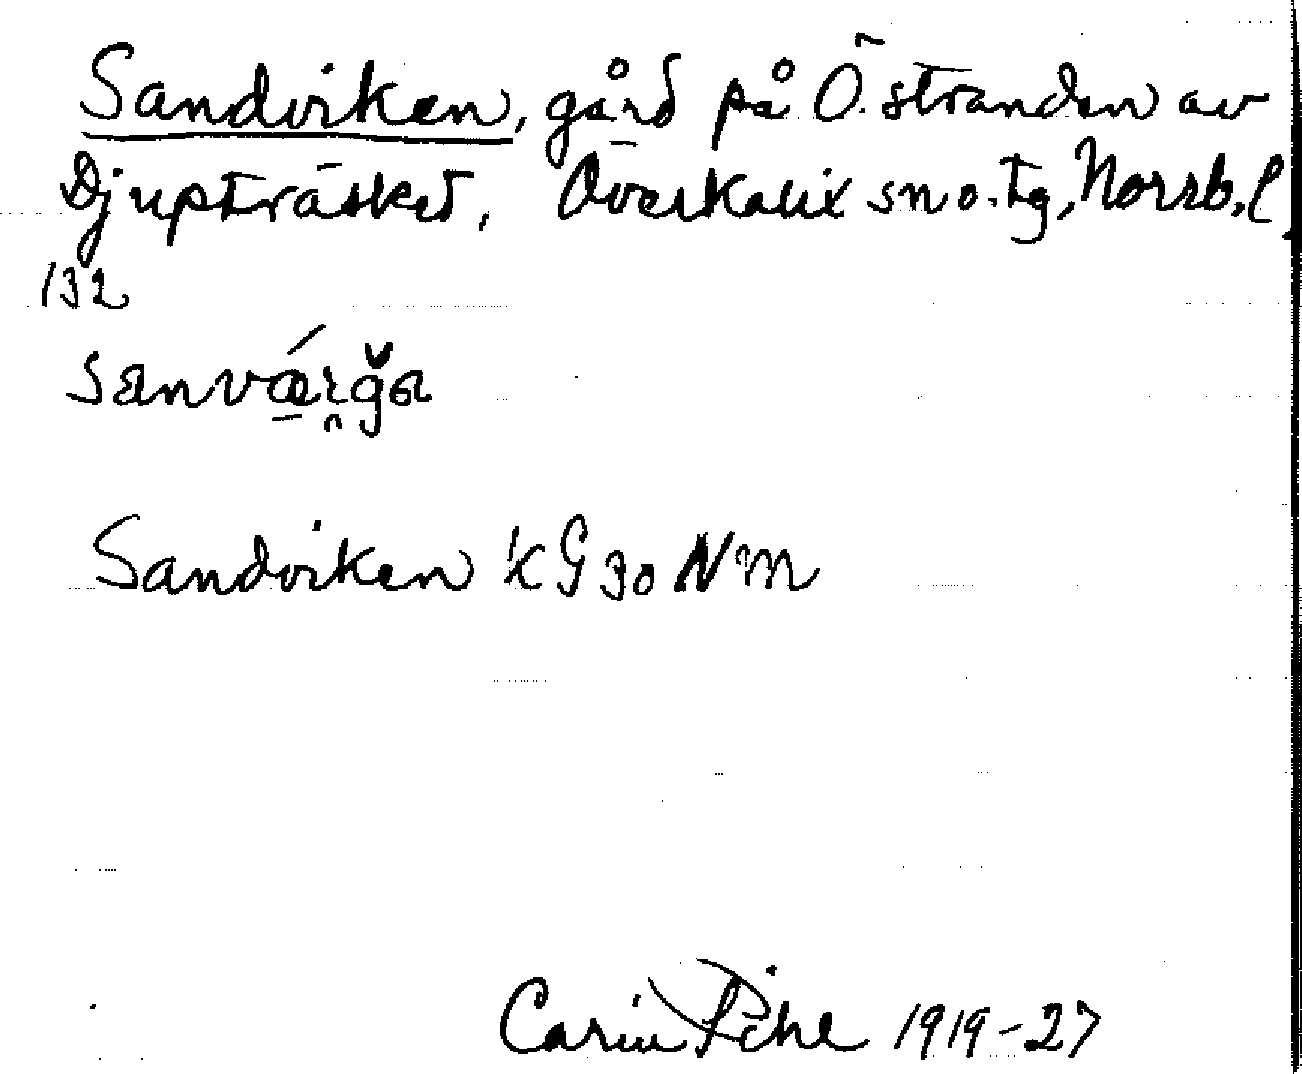 Sandviken, gård på Ö. stranden av
Djupträsket, Överkalix sn o. tg, Norrb. l
132
Sandviken k G 30 NM
Carin Pihl 1919-27